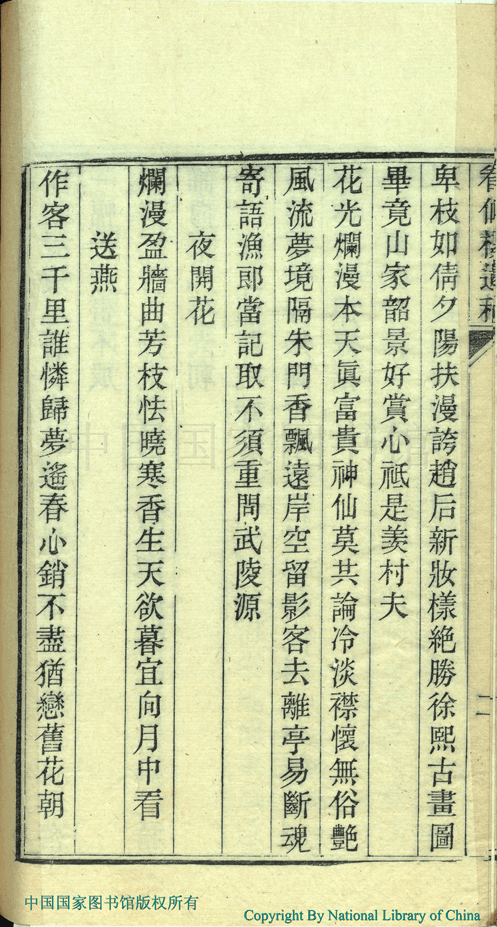 卑枝如倩夕陽扶漫誇趙后新妝樣絶勝徐熙古畫圖
畢竟山家韶景好賞心祗是羨村夫
花光爛漫本天眞富貴神仙莫共論冷淡襟懷無俗豔
風流夢境隔朱門香飄遠岸空留影客去離亭易斷魂
寄語漁郎當記取不須重問武陵源
夜開花
爛漫盈牆曲芳枝怯曉寒香生天欲暮宜向月中看
送燕
作客三千里誰憐歸夢遙春心銷不盡猶戀舊花朝
中国国家图书馆版权所有
Copyright By National Library of China